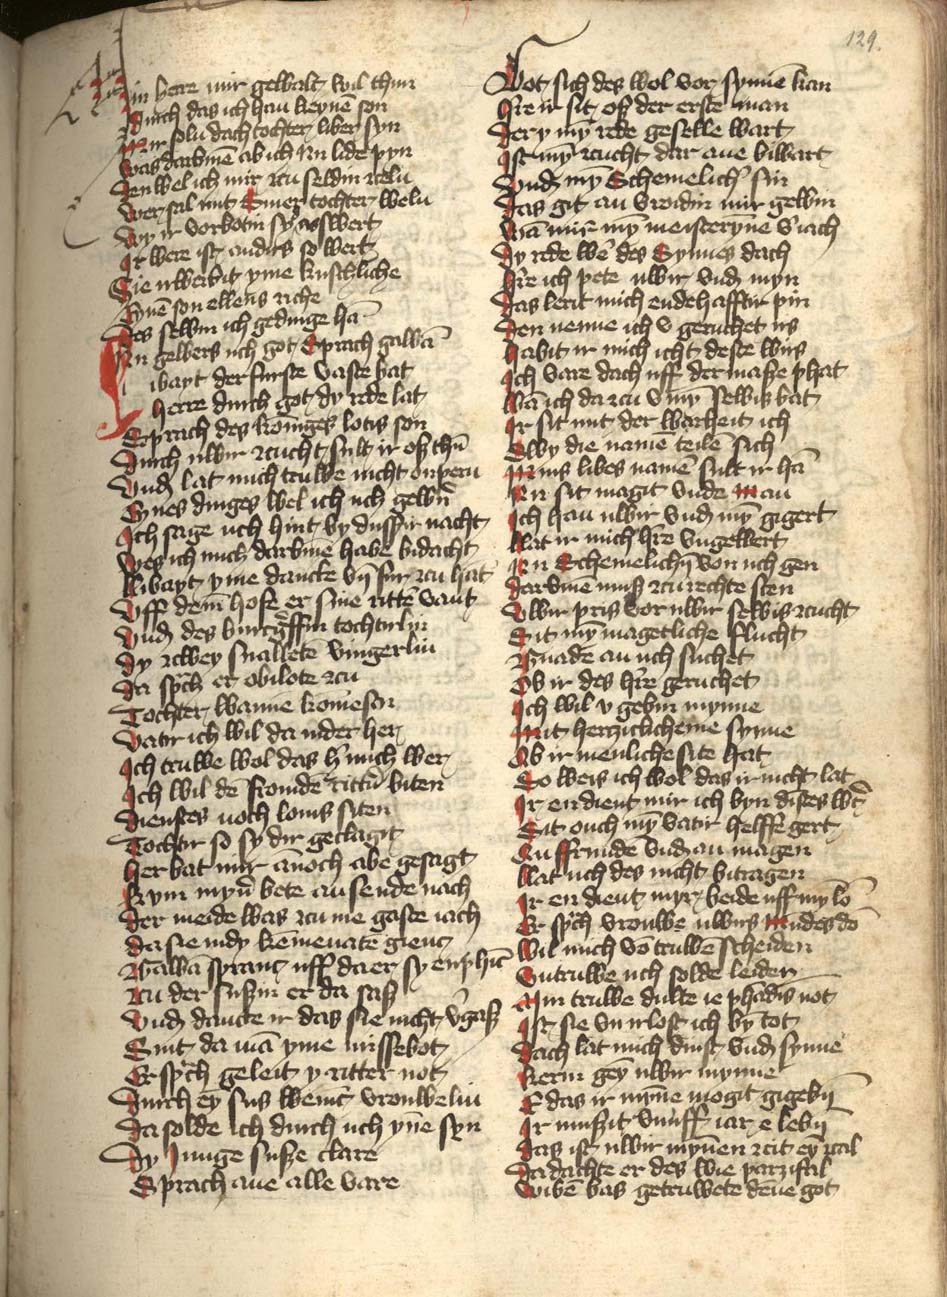 129.
Min herre mir gewalt wil thun
durch das ich han keynē son
Mir solū dach tochter liber syn
was darvmē ab ich irn lide pyn
den wel ich mir zcu seldin zcelu
wer sal mit Siner tochter welu
wy ir vorbotin sy das swert
Ir were ist andirs so wert
Sie irwerbit yme kuschliche
Eynē son ellens riche
des selbin ich gedinge hā
Nu gewers uch got Sprach gawā
libayt der furste vaste bat
herre durch got dy rede lat
Sprach des koniges lotis son
durch uwir zcucht sult ir oß thū
vnd lat mich truwe nicht onperu
Eynes dinges wel ich uch gewern
Ich sage uch hint by dusser nacht
wes ich mich darvmē habe bidacht
libayt yme dancte vn̄ fur zcu hāt
vff dem hofe er sine rittē vant
vnd des burcgreffin tochtirlyn
dy zcwey snalletē vingerlin
da sprach er obilote zcu
Tochter wanne komestu
vatir ich wil da nider her
Ich truwe wol das h' mich wer
Ich wil dē fromdē rittir biten
dienstes noch lonis siten
Tochtir so sy dir geclagit
her hat mir ānoch abe gesagt
kum myner bete an sende nach
der meide was zcu me gaste iach
da sie indy kemenate gienc
Gawā spranc uff da er sy enphīc
zcu der sussin er da saß
vnd dancte ir das sie nicht vgaß
Sint da mā yme missebot
Er sprach geleit y ritter not
durch ey sus wenic vrouwelin
da solde ich durch uch ynne syn
dy Junge suße clare
Sprach ane alle vare
Got sich des wol vor synnē kan
Hre ir sit oß der erste man
dery my rede geselle wart
Ist my zcucht dar ane biwart
vnd my Schemelich' sin
das git an vroidin mir gewin
wā mir my meisterynē v'iach
dy rede we des Synnes dach
Hre ich pete uwir vnd myn
das lerit mich endehafftir pin
den nenne ich v geruchet irs
habit ir mich icht deste wirs
Ich vare dach uff der maße phat
wā ich da zcu v my selbis bat
Ir sit mit der warheit ich
Swy die name teile sich
Mins libes namē sult ir hā
Nu sit magit vnde man
Ich han uwir vnd my gigert
lat ir mich hre vngewert
Nu Schemelichn̄ von uch gen
darvme muß zcu rechte sten
vwir pris vor uwir selbis zcucht
Sit my magetliche flucht
Gnade an uch suchet
Ob ir des hre geruchet
Ich wil v gebin mynne
Mit herzciclicheme synne
Ob ir menliche site hat
So weis ich wol das ir nicht lat
Ir en dient mir ich byn distes wert
Sit ouch my vatir helffe gert
An ffrunde vnd an magen
lat uch des nicht bitragen
Ir en dient myr beide uff my lō
Er sprach vrouwe uwirs mūdes dō
wil mich vō truwē scheiden
vntruwe uch solde leiden
Min truwe dulte ie phādis not
Ist sie vnirlost ich by tot
dach lat mich dinst vnd synne
kerin gey uwir mynne
E das ir mynne mogit gigebn̄
Ir mussit vumff iar e lebn̄
das ist uwir mynnen zcit ey zcal
da dachte er des wie parzifal
wibē bas getruwete denne got